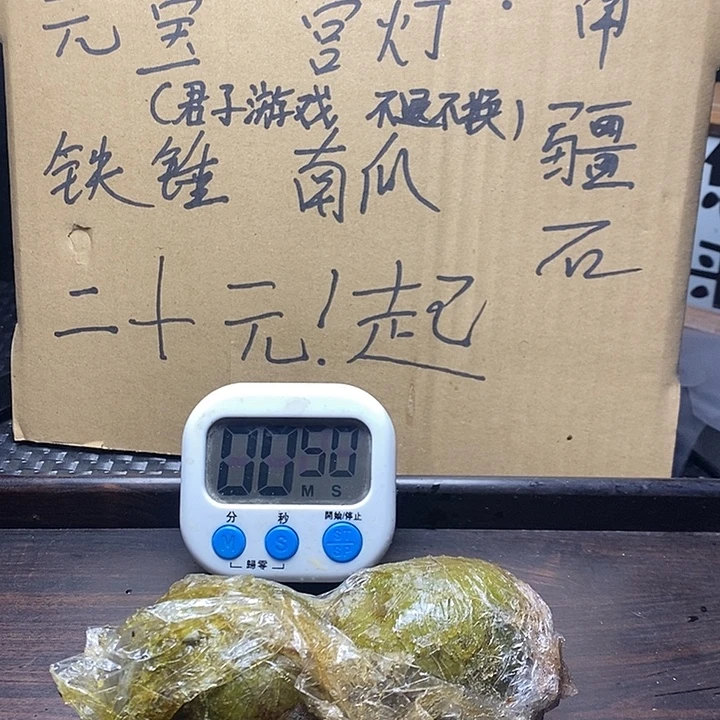 元宝 宫灯 · 南
(君子游戏 不退不换)
铁锤 南瓜 疆
石
二十元!起
00 50
M S
分 秒 開始/停止
M S ST/SP
歸零